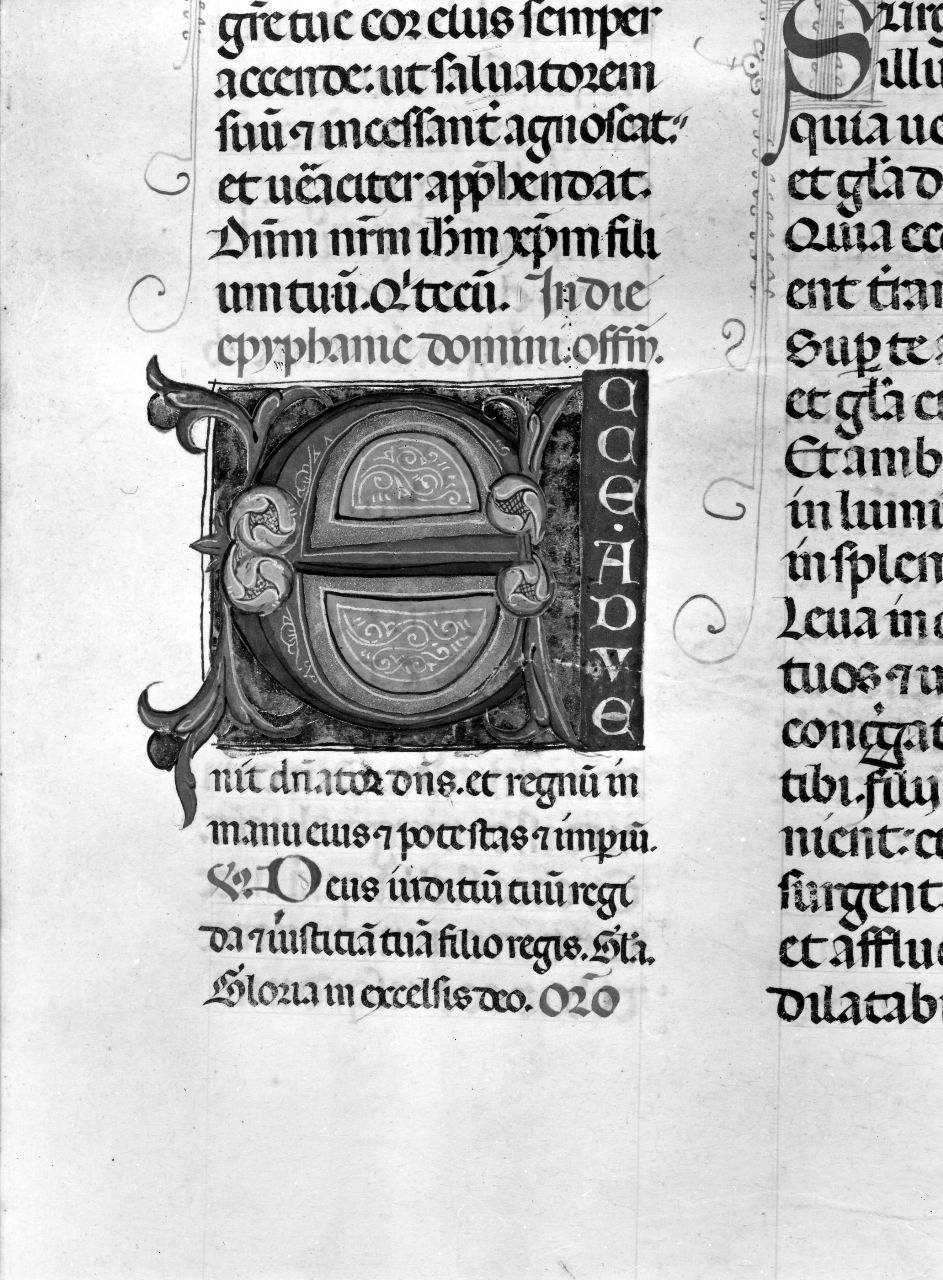 gr̄e tue cor eius semper
accende: ut saluatorem
suū ⁊ incessant̄ agnoscat:
et ueraciter app̄hendat.
Dn̄m nr̄m ih̄m xp̄m fili
um tuū. Qͥ tecū. In die
epyphanie domini. offm̄.
E
CCE. ADVE
nit dn̄ator dn̄s. et regnū in
manu eius ⁊ potestas ⁊ imperiū.
V. Deus iuditiū tuū regi
da ⁊ iustitiā tuā filio regis. Gl̄a.
Gloria in excelsis deo. Or̄o
S
illu
quia ue
et gl̄a d
Quia ecc
ent t
Sup te
et gl̄a e
Et amb
in lumi
in splen
Leua in c
tuos ⁊ u
congͣgat
tibi. filij
nient: et
surgent
et afflue
dilatab